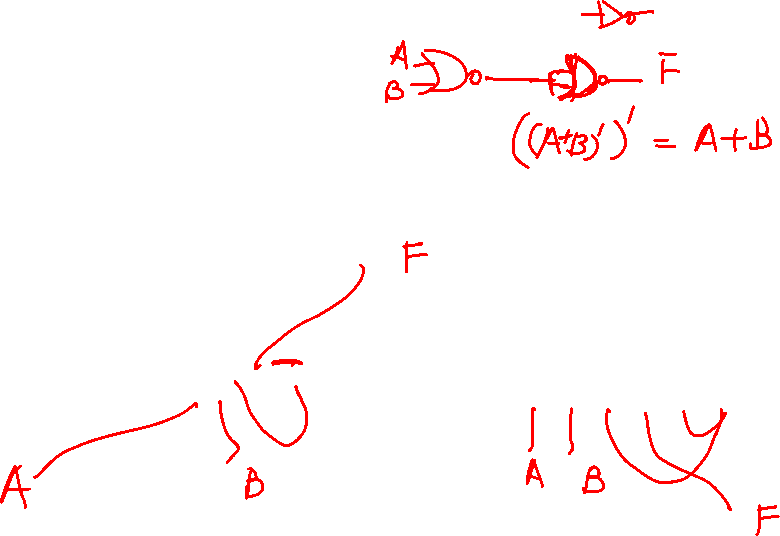 A
B
F
((A+B)')' = A+B
F
A
B
A
B
F